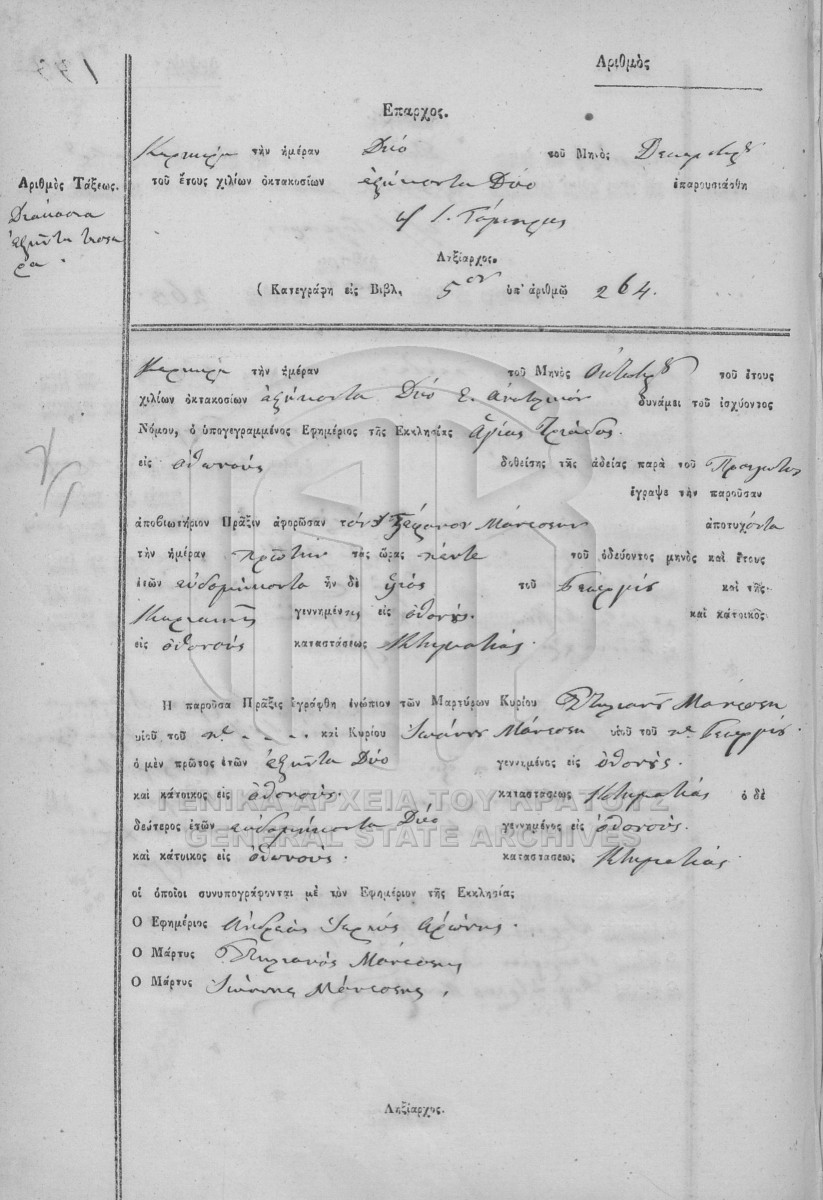 Ἀριθμὸς
Ἔπαρχος.
Κερκυρα τὴν ἡμέραν Δύο τοῦ Μηνὸς Δεκεμβρίου
Ἀριθμὸς Τάξεως.
τοῦ ἔτους χιλίων ὀκτακοσίων ἑξήκοντα Δύο ἐπαρουσιάσθη
Διακόσια
ἑξῆντα τεσσε
ρα.
Ληξίαρχος.
(Κατεγράφη εἰς Βιβλ. 5ον ὑπ' ἀριθμῷ 264.
Κερκυρα τὴν ἡμέραν τοῦ Μηνὸς Ὀκτωβρίου τοῦ ἔτους
χιλίων ὀκτακοσίων ἑξήκοντα Δύο δυνάμει τοῦ ἰσχύοντος
Νόμου, ὁ ὑπογεγραμμένος Ἐφημέριος τῆς Ἐκκλησίας Ἁγίας Τριάδος.
εἰς ὀθωνούς δοθείσης τῆς ἀδείας παρὰ τοῦ
ἔγραψε τὴν παροῦσαν
ἀποβιωτήριον Πρᾶξιν ἀφορῶσαν τὸν Στέφανον Μάνεσην ἀποτυχόντα
τὴν ἡμέραν πρῶτην τὰς ὥρας πέντε τοῦ ὁδεύοντος μηνὸς καὶ ἔτους
ἐτῶν εὐδομήκοντα ἦν δὲ υἱός τοῦ Γεωργίου καὶ τῆς
γεννημένος εἰς ὀθονούς. καὶ κάτοικος
εἰς ὀθονούς καταστάσεως Κτηματίας.
Ἡ παροῦσα Πρᾶξις ἐγράφθη ἐνώπιον τῶν Μαρτύρων Κυρίου Στηλιανοῦ Μάνεση
υἱοῦ τοῦ καὶ Κυρίου Ἰωάννου Μάνεση υἱοῦ τοῦ πτ Γεωργίου.
ὁ μὲν πρῶτος ἐτῶν ἑξῆντα Δύο γεννημένος εἰς ὀθονούς.
καὶ κάτοικος εἰς ὀθονούς. καταστάσεως Κτηματίας ὁ δὲ
δεύτερος ἐτῶν εὐδομήκοντα Δύο γεννημένος εἰς ὀθονούς.
καὶ κάτοικος εἰς ὀθωνούς. καταστάσεως Κτηματίας.
οἱ ὁποῖοι συνυπογράφονται μὲ τὸν Ἐφημέριον τῆς Ἐκκλησίας
Ὁ Ἐφημέριος Ἀνδρεας Ἱερεύς
Ὁ Μάρτυς Στηλιανός Μάνεσης
Ὁ Μάρτυς Ἰωάννης Μάνεσης.
Ληξίαρχος.
ΓΕΝΙΚΑ ΑΡΧΕΙΑ ΤΟΥ ΚΡΑΤΟΥΣ
GENERAL STATE ARCHIVES